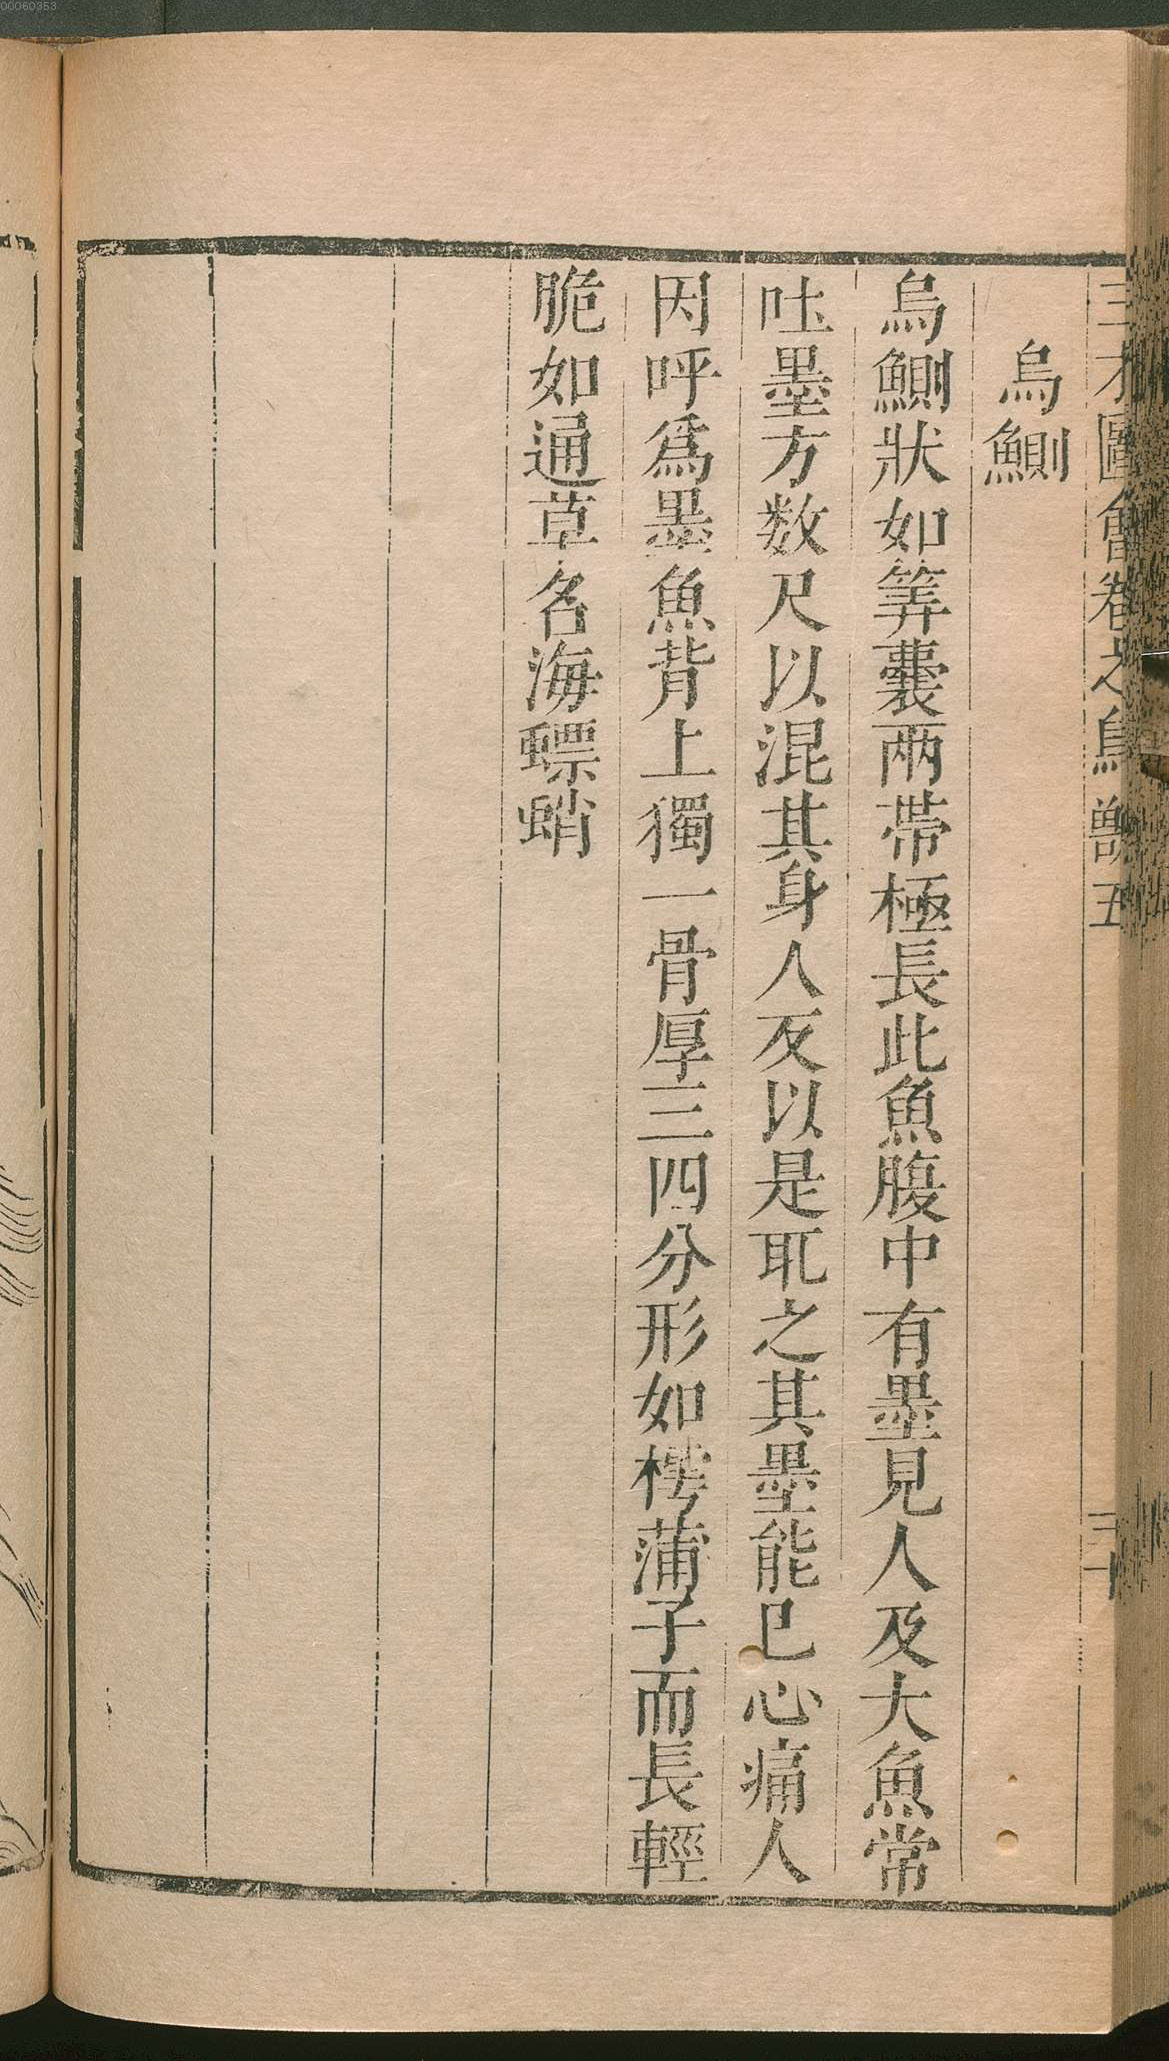 00060353
三才圖會卷之鳥獸五
三十
烏鰂
烏鰂狀如筭囊兩帶極長此魚腹中有墨見人及大魚常
吐墨方数尺以混其身人反以是取之其墨能已心痛人
因呼爲墨魚背上獨一骨厚三四分形如樗蒲子而長輕
脆如通草名海螵蛸